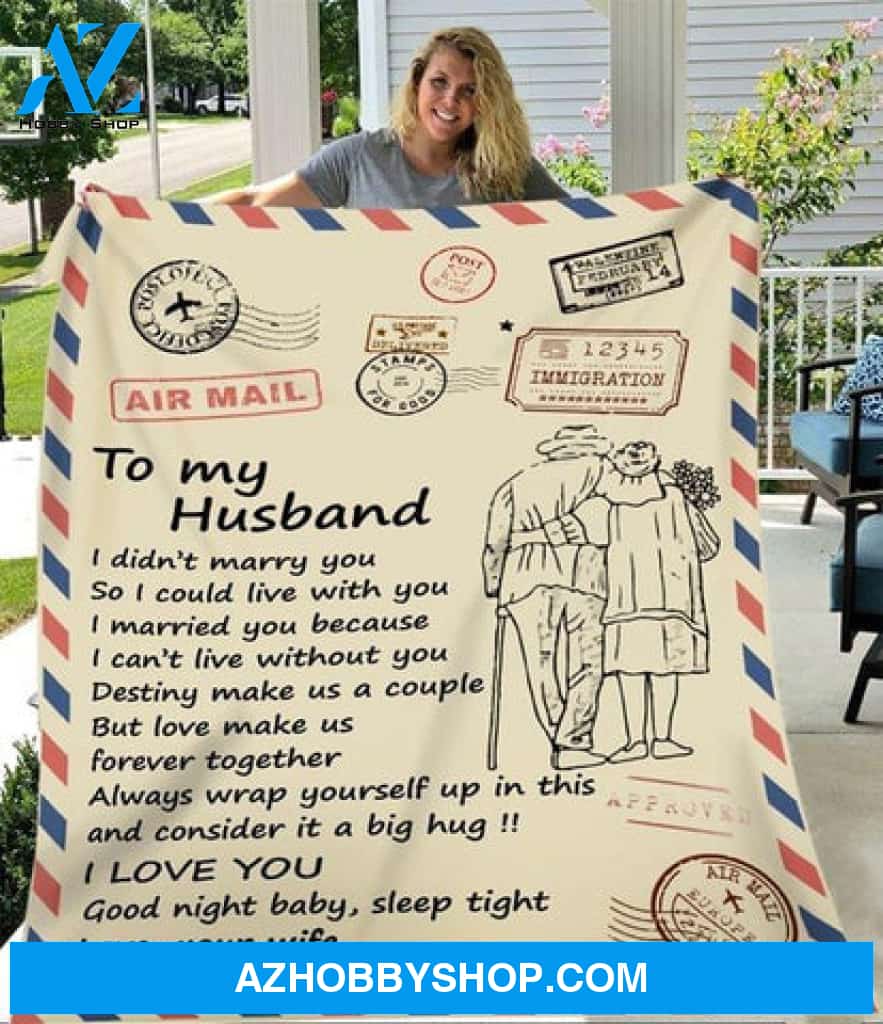 AZ
HOBBY SHOP
POST OFFICE
POST
VALENTINE
FEBRUARY 14
DELIVERED
STAMPS
FOR GOOD
12345
IMMIGRATION
AIR MAIL
To my
Husband
I didn't marry you
So I could live with you
I married you because
I can't live without you
Destiny make us a couple
But love make us
forever together
Always wrap yourself up in this
and consider it a big hug !!
I LOVE YOU
Good night baby, sleep tight
APPROVED
AIR MAIL
EUROPE
your wife
AZHOBBYSHOP.COM